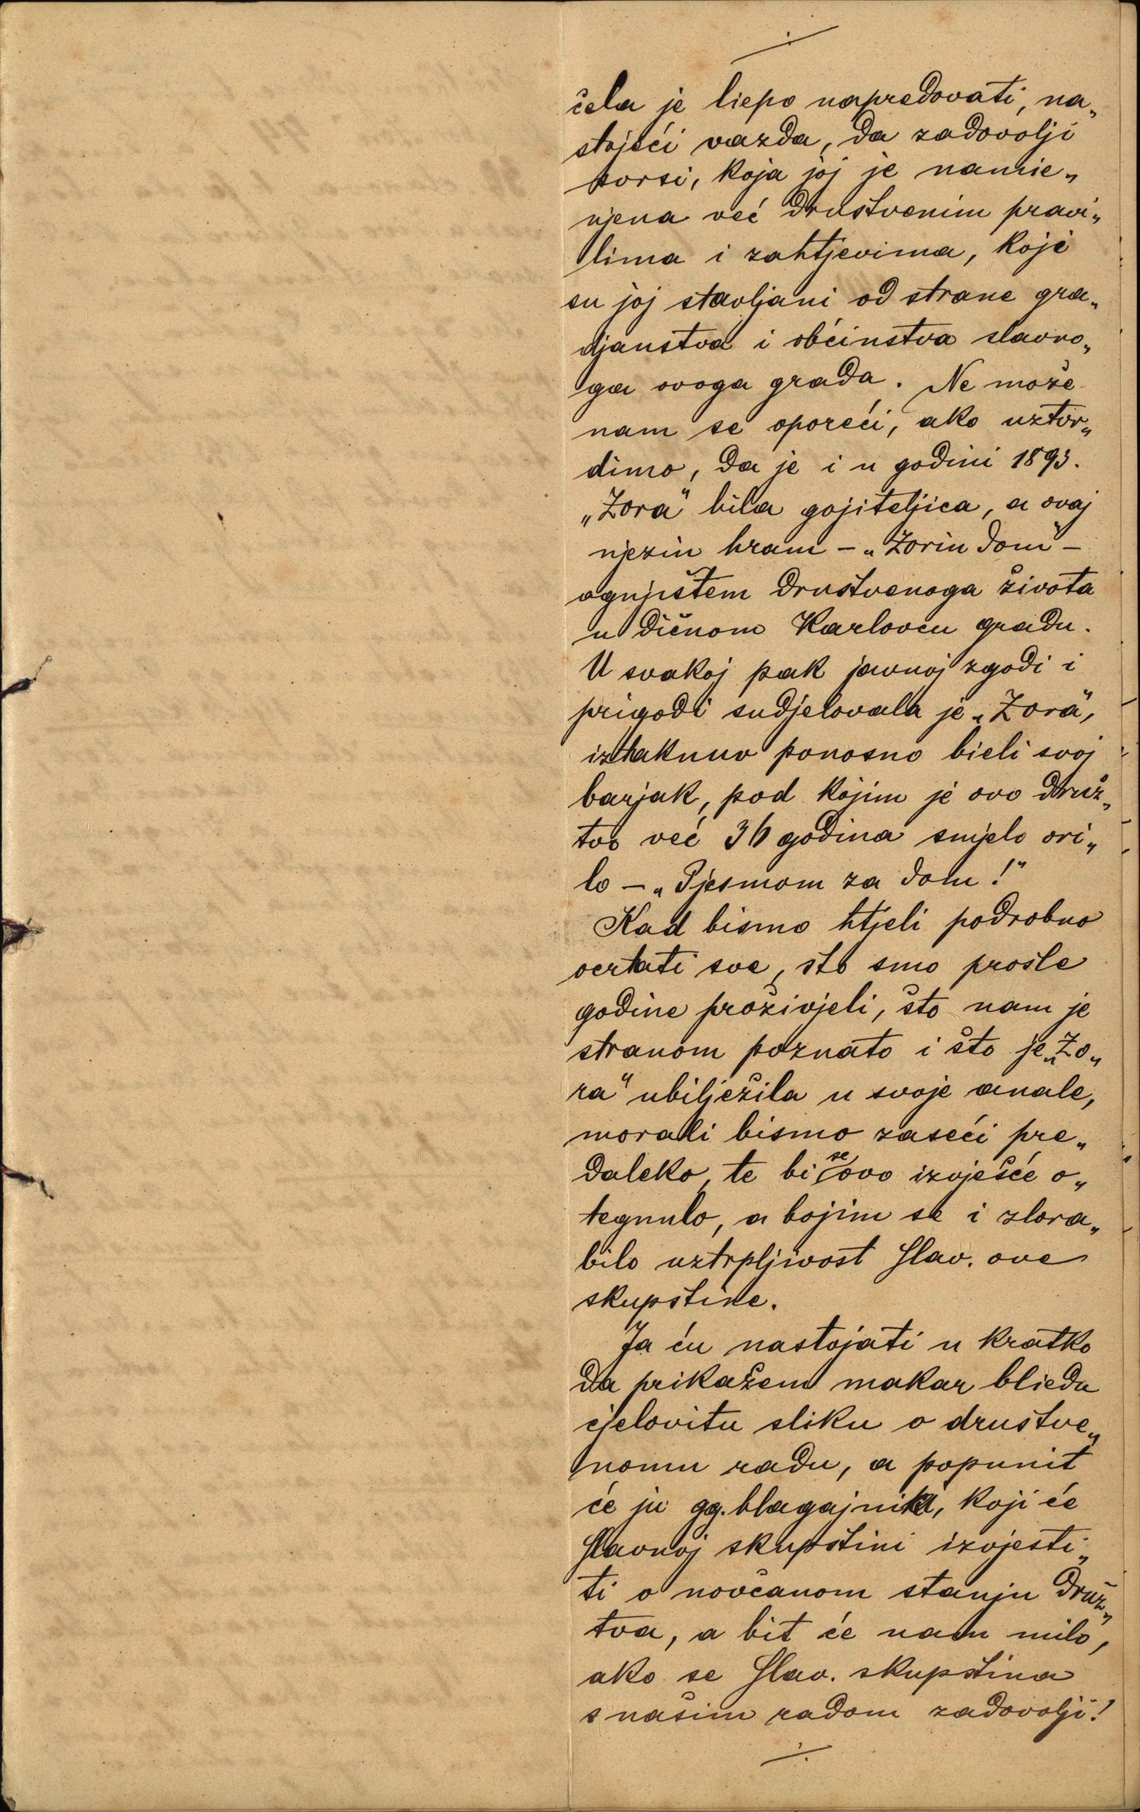 čela je liepo napredovati, na„
stojeći vazda, da zadovolji
svrsi, koja joj je namie„
njena već društvenim pravi„
lima i zahtjevima, koji
su joj stavljani od strane gra„
djanstva i obćinstva slavno„
ga ovoga grada. Ne može
nam se oporeći, ako uztvr„
dimo, da je i u godini 1893.
„Zora“ bila gojiteljica, a ovaj
njezin hram – „Zorin dom“ –
ognjištem družtvenoga života
u dičnom Karlovcu gradu.
U svakoj pak javnoj zgodi i
prigodi sudjelovala je „Zora“,
iztaknuv ponosno bieli svoj
barjak, pod kojim je ovo druž„
tvo već 36 godina smjelo ori„
lo – „Pjesmom za dom!“
Kad bismo htjeli podrobno
ocrtati sve, što smo prošle
godine proživjeli, što nam je
stranom poznato i što je „Zo„
ra“ ubilježila u svoje anale,
morali bismo zaseći pre„
daleko, te bi se ovo izvješće o„
tegnulo, a bojim se i zlora„
bilo uztrpljivost slav. ove
skupštine.
Ja ću nastojati u kratko
da prikažem makar bliedu
cjelovitu sliku o društve„
nomu radu, a popunit
će ju gg. blagajnika, koji će
slavnoj skupštini izvjesti„
ti o novčanom stanju druž„
tva, a bit će nam milo,
ako se slav. skupština
s našim radom zadovolji!